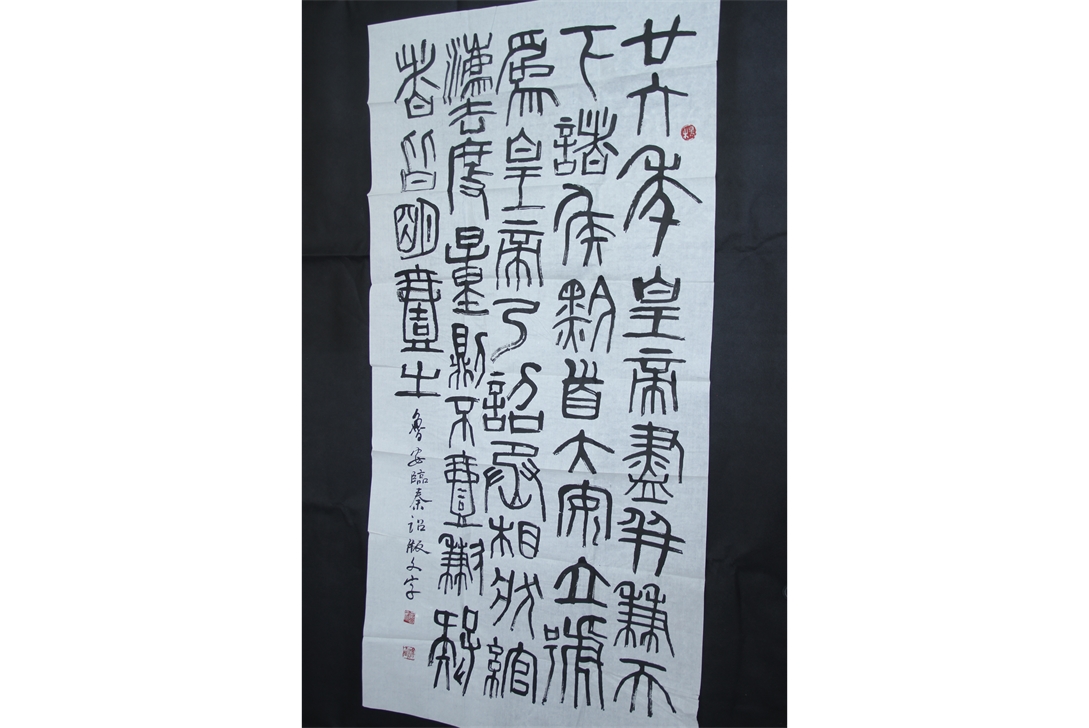 廿六年皇帝盡并兼天
下諸侯黔首大安立號
爲皇帝乃詔丞相狀綰
灋度量則不壹歉疑
者皆明壹之
魯安臨秦詔版文字